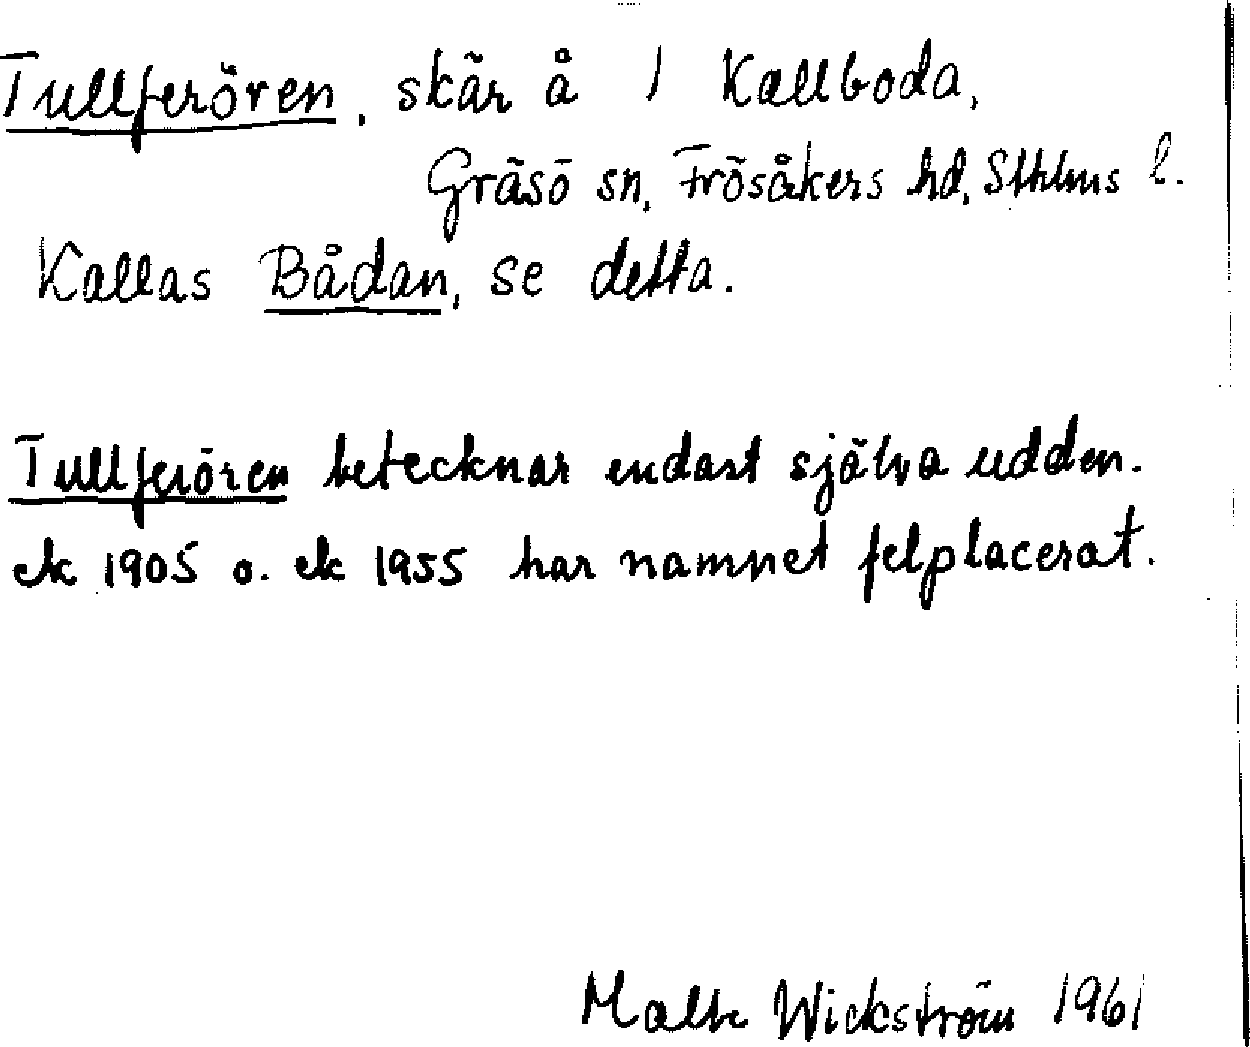 Tullferören, skär å 1 Kallboda,
Gräsö sn, Frösåkers hd, Sthlms l.
Kallas Bådan, se detta.
Tullferören betecknar endast själva udden.
ek 1905 o. ek 1955 har namnet felplacerat.
Malte Wickström 1961